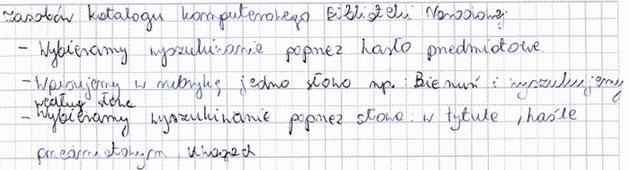 zasobów katalogu komputerowego Biblioteki Narodowej
- Wybieramy wyszukiwanie poprzez hasło przedmiotowe
- Wpisujemy w rubrykę jedno słowo np. Bieruń i wyszukujemy
według słów
- Wybieramy wyszukiwanie poprzez słowo w tytule, haśle
przedmiotowym, uwagach